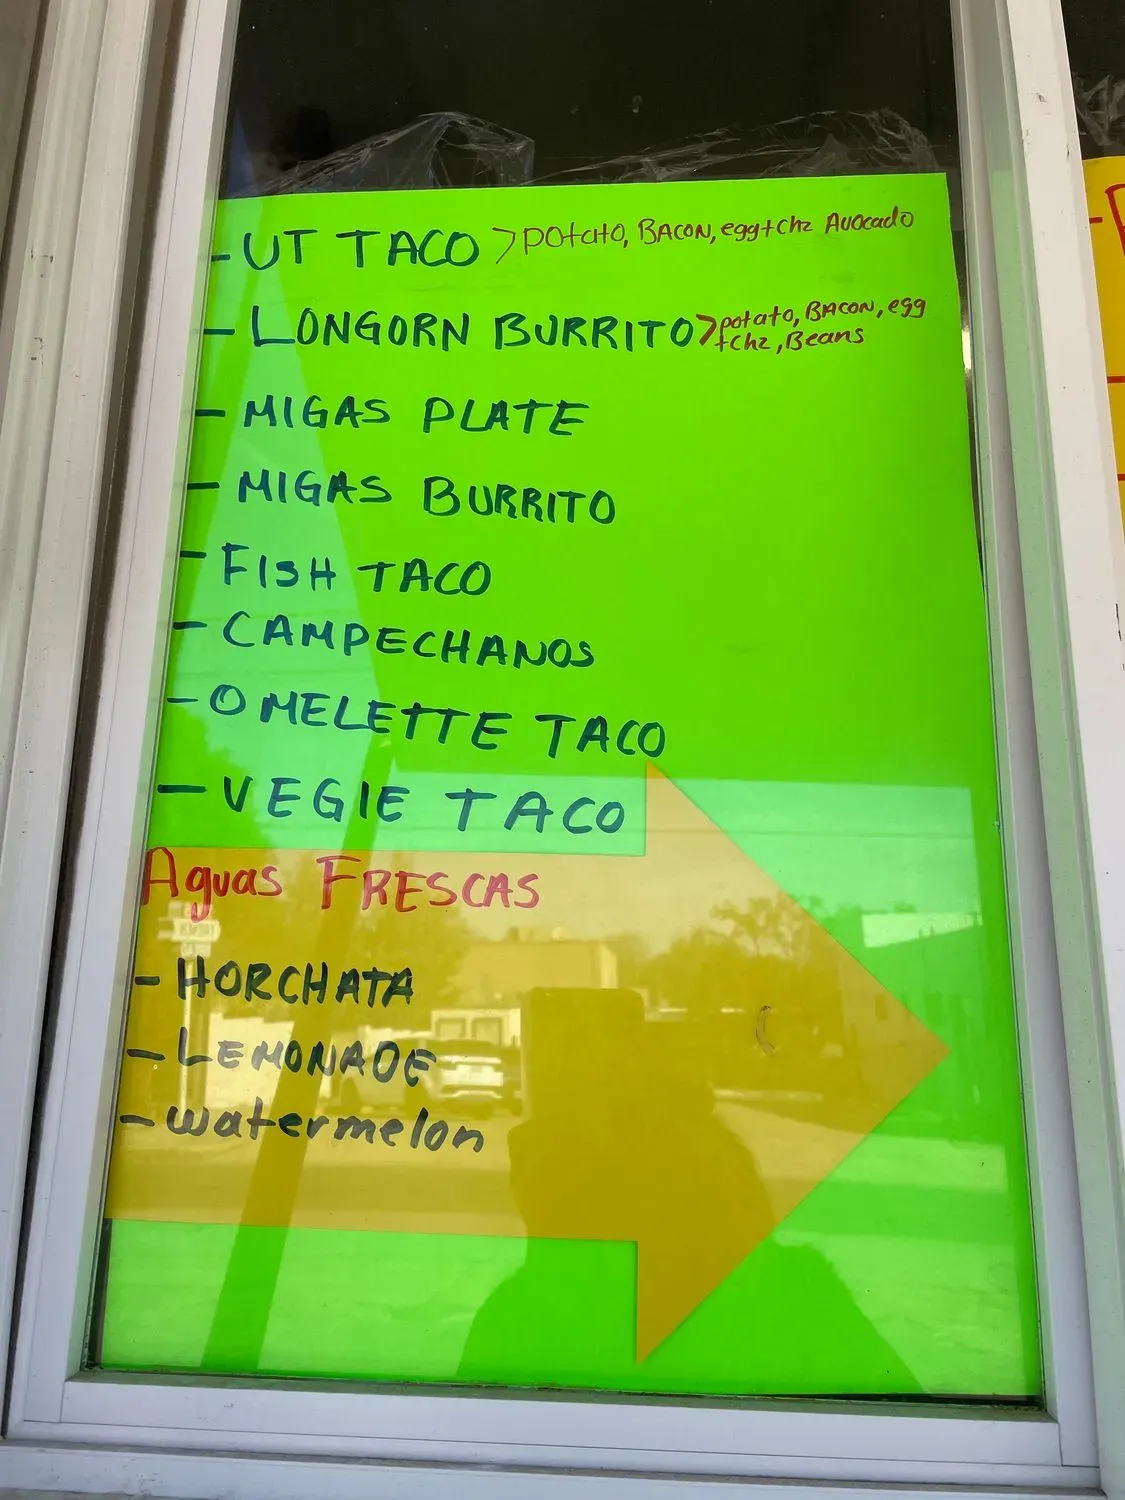 - UT TACO > potato, BACON, egg+chz Avocado
- LONGORN BURRITO > potato, BACON, egg
+chz, Beans
- MIGAS PLATE
- MIGAS BURRITO
- FISH TACO
- CAMPECHANOS
- OMELETTE TACO
- VEGIE TACO
Aguas FRESCAS
- HORCHATA
- LEMONADE
- watermelon